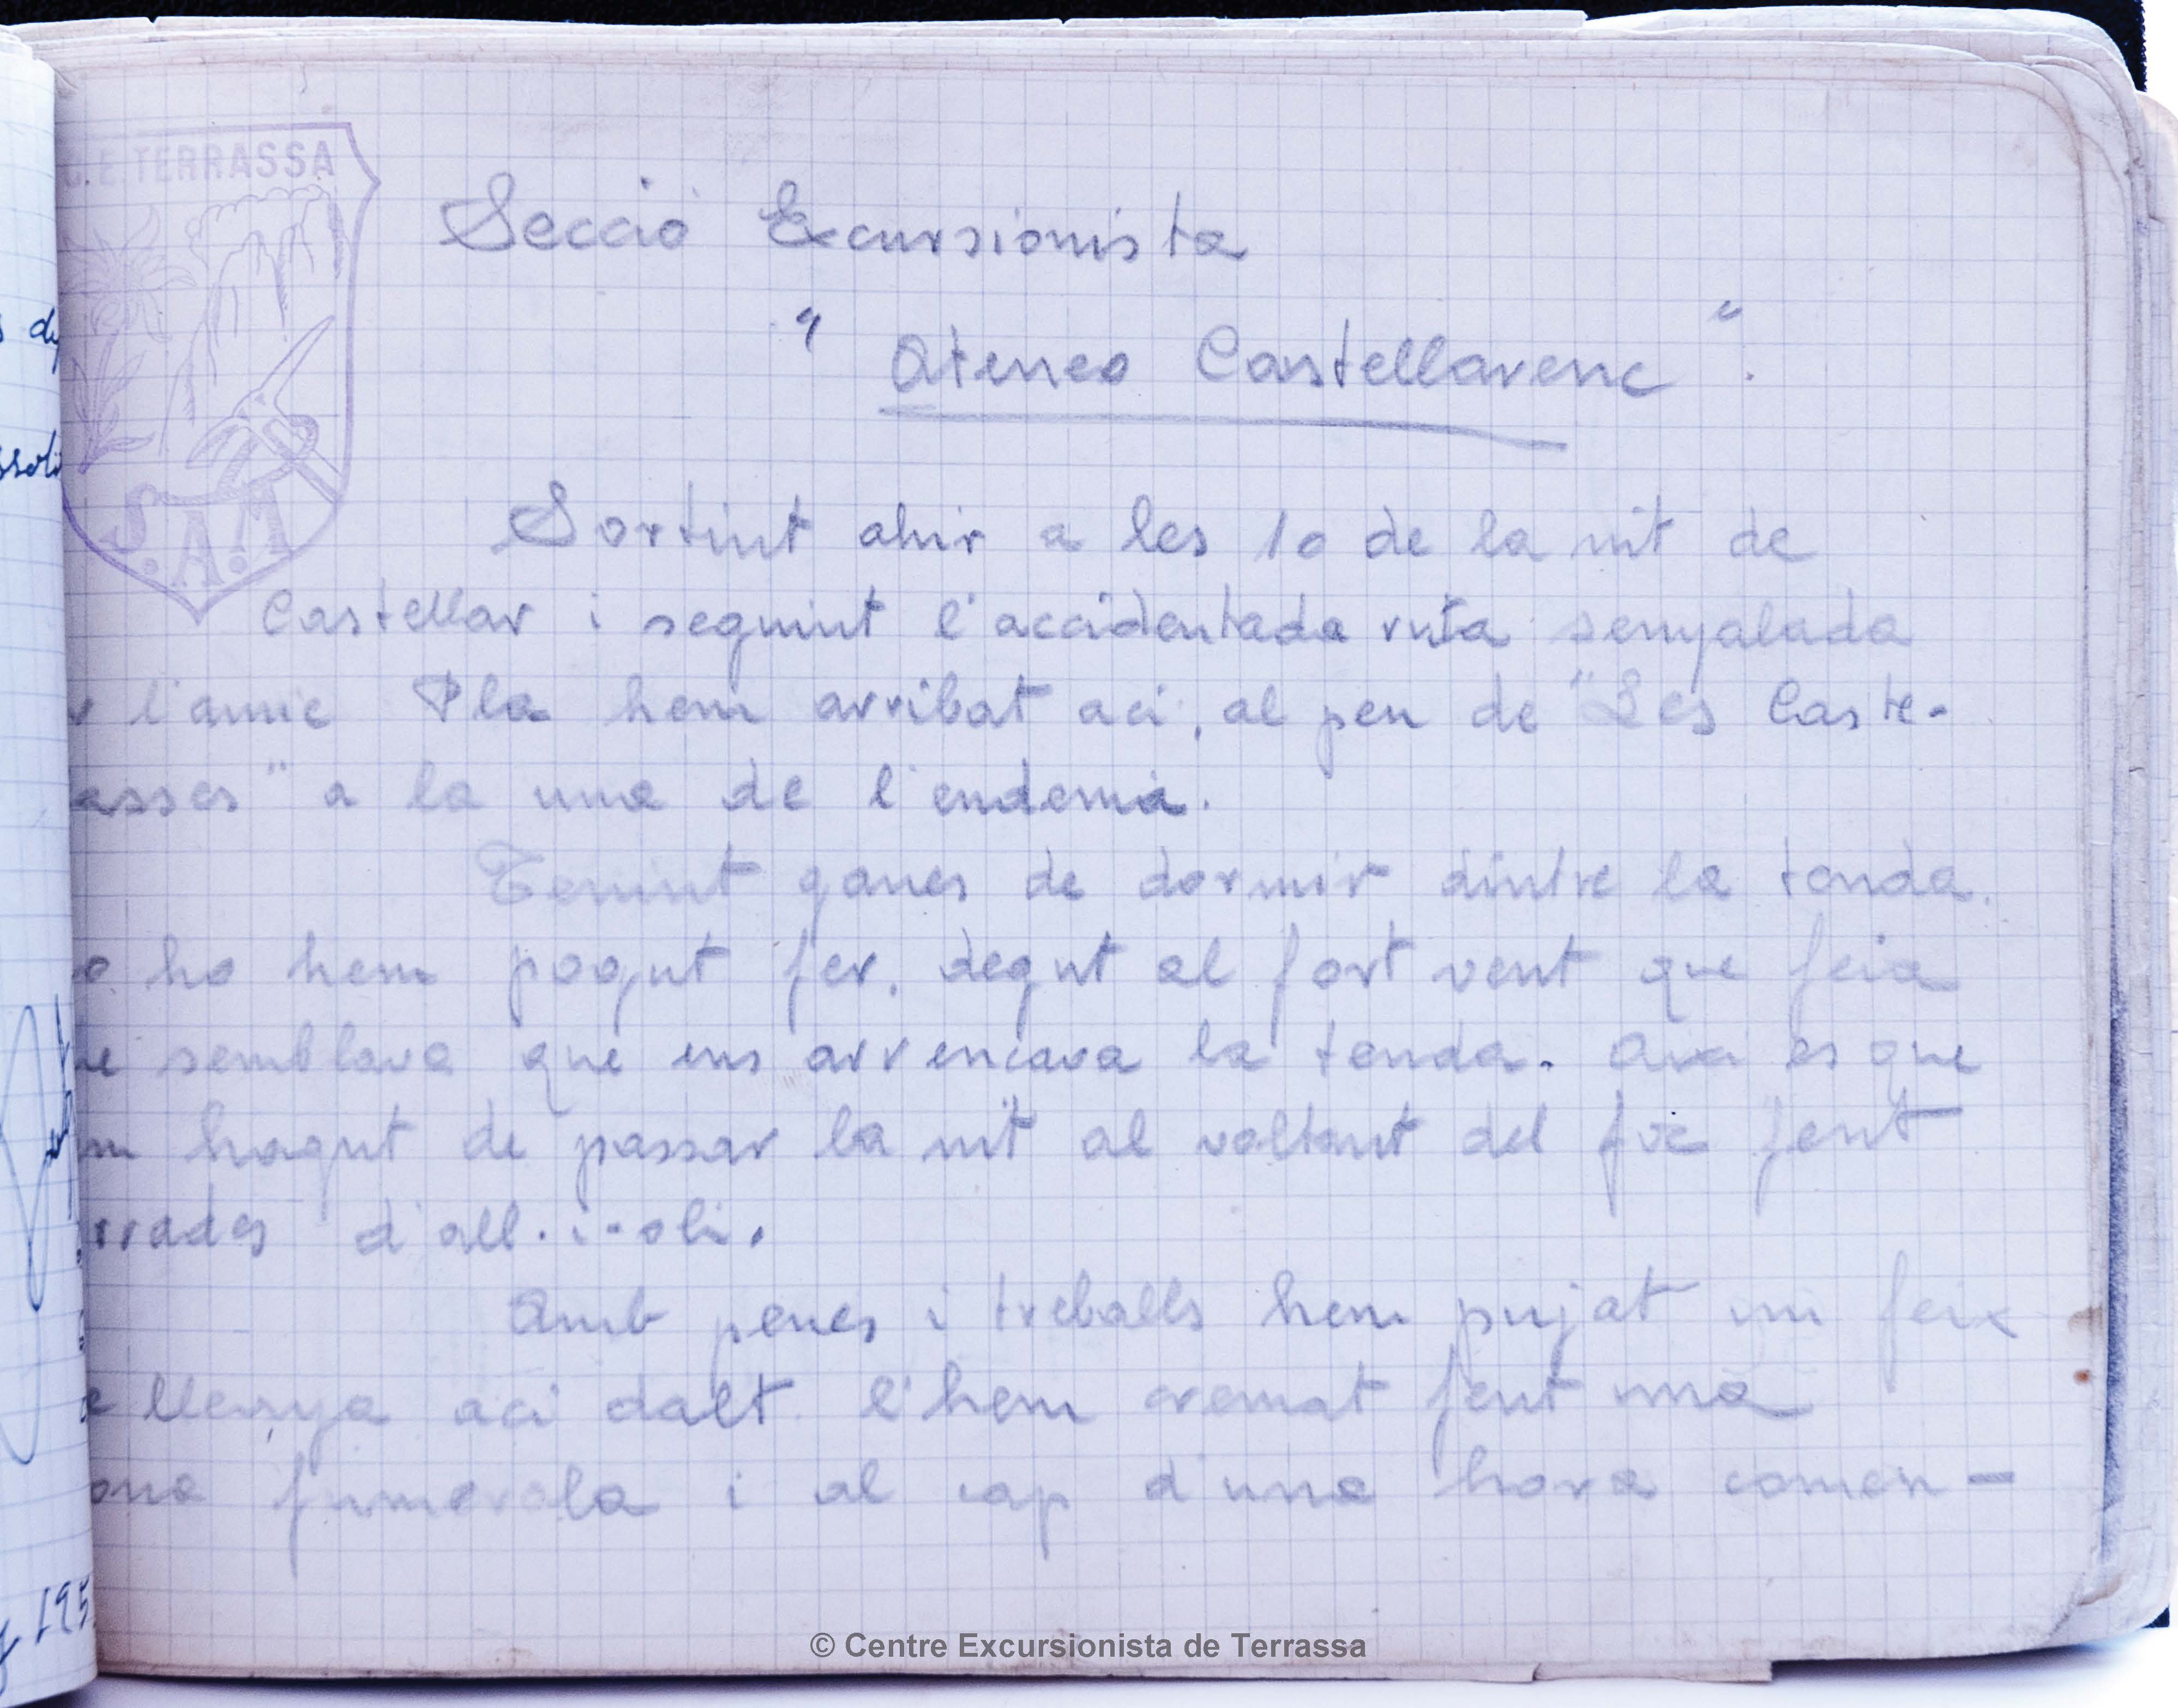 C.E. TERRASSA
S.A.M.
Secció Excursionista
" Ateneo Castellarenc ".
Sortint ahir a les 10 de la nit de
Castellar i seguint l'accidentada ruta senyalada
r l'amic Pla hem arribat aci, al peu de "Les Caste-
asses" a la una de l'endemà.
Tenint ganes de dormir dintre la tenda.
o ho hem pogut fer, degut al fort vent que feia
ue semblava que ens arrencava la tenda. Axi es que
em hagut de passar la nit al voltant del foc fent
rrades d'all-i-oli.
Amb penes i treballs hem pujat un feix
e llenya aci dalt. l'hem cremat fent una
ona fumerola i al cap d'una hora comen-
195
© Centre Excursionista de Terrassa